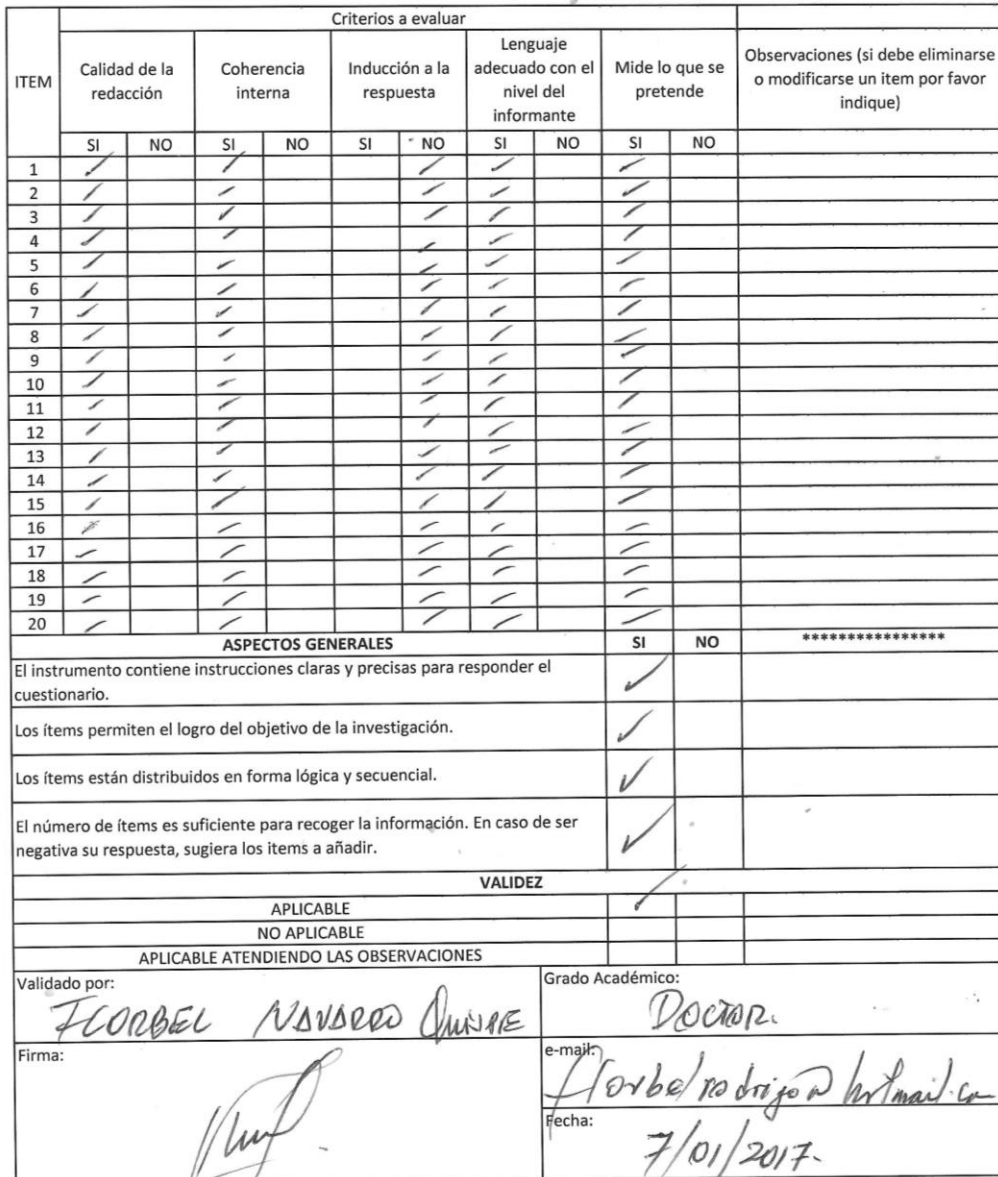 Criterios a evaluar
ITEM
Calidad de la redacción
Coherencia interna
Inducción a la respuesta
Lenguaje adecuado con el nivel del informante
Mide lo que se pretende
Observaciones (si debe eliminarse o modificarse un item por favor indique)
SI NO SI NO SI NO SI NO SI NO
1
2
3
4
5
6
7
8
9
10
11
12
13
14
15
16
17
18
19
20
ASPECTOS GENERALES SI NO ****************
El instrumento contiene instrucciones claras y precisas para responder el
cuestionario.
Los ítems permiten el logro del objetivo de la investigación.
Los ítems están distribuidos en forma lógica y secuencial.
El número de ítems es suficiente para recoger la información. En caso de ser
negativa su respuesta, sugiera los items a añadir.
VALIDEZ
APLICABLE
NO APLICABLE
APLICABLE ATENDIENDO LAS OBSERVACIONES
Validado por:
NAVARRO
Grado Académico:
DOCTOR.
Firma:
e-mail:
Fecha:
7/01/2017.